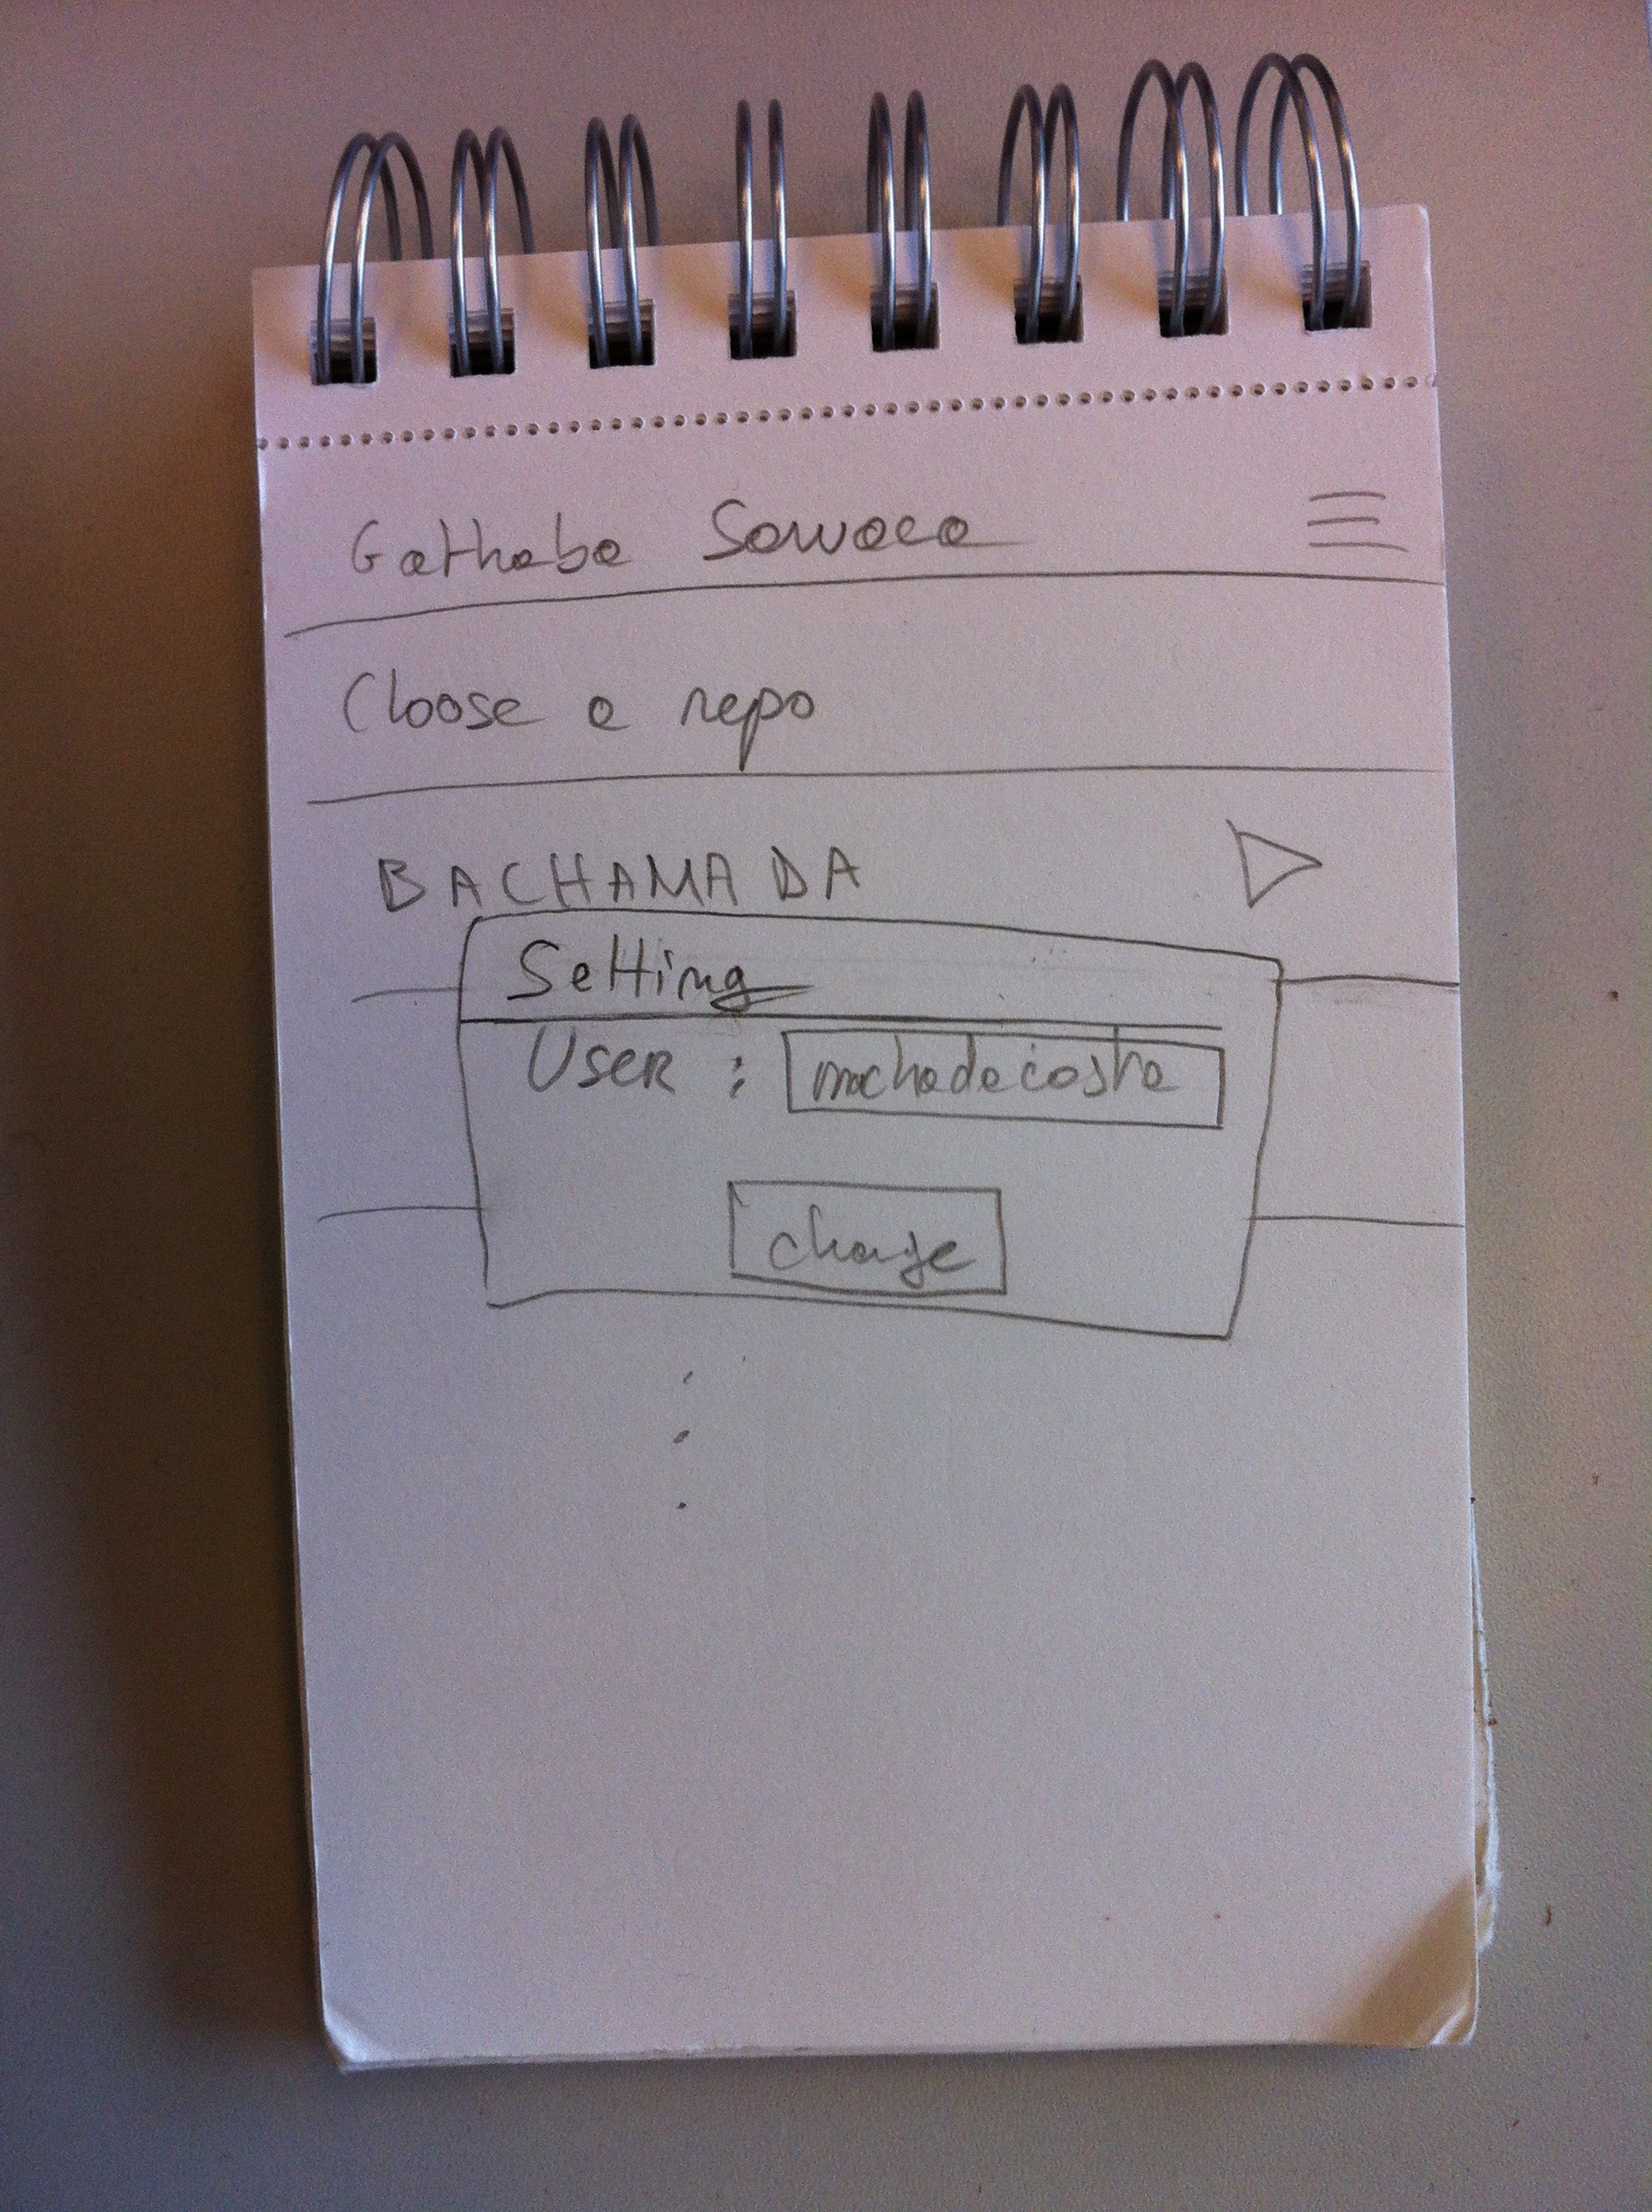 Gathaba Sawaca
Choose a repo
BACHAMADA
Setting
User : machadacosta
change